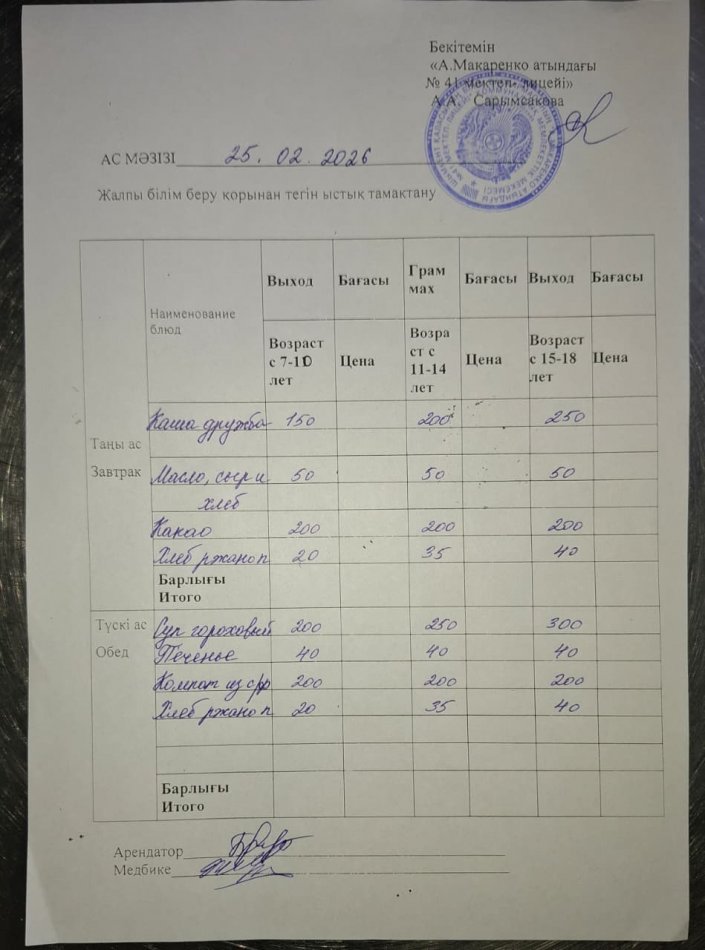 Бекітемін
«А.Макаренко атындағы
№ 41 мектеп- лицейі»
А.А. Сарымсакова
АС МӘЗІЗІ 25. 02. 2026
Жалпы білім беру қорынан тегін ыстық тамақтану
Наименование блюд Выход Бағасы Грам мах Бағасы Выход Бағасы
Возраст с 7-10 лет Цена Возра ст с 11-14 лет Цена Возраст с 15-18 лет Цена
Каша дружба 150 200 250
Таңы ас
Завтрак Масло, сыр и 50 50 50
хлеб
Какао 200 200 200
Хлеб ржано п 20 35 40
Барлығы
Итого
Түскі ас Суп гороховый 200 250 300
Обед Печенье 40 40 40
Компот из с/ф 200 200 200
Хлеб ржано п 20 35 40
Барлығы
Итого
Арендатор
Медбике